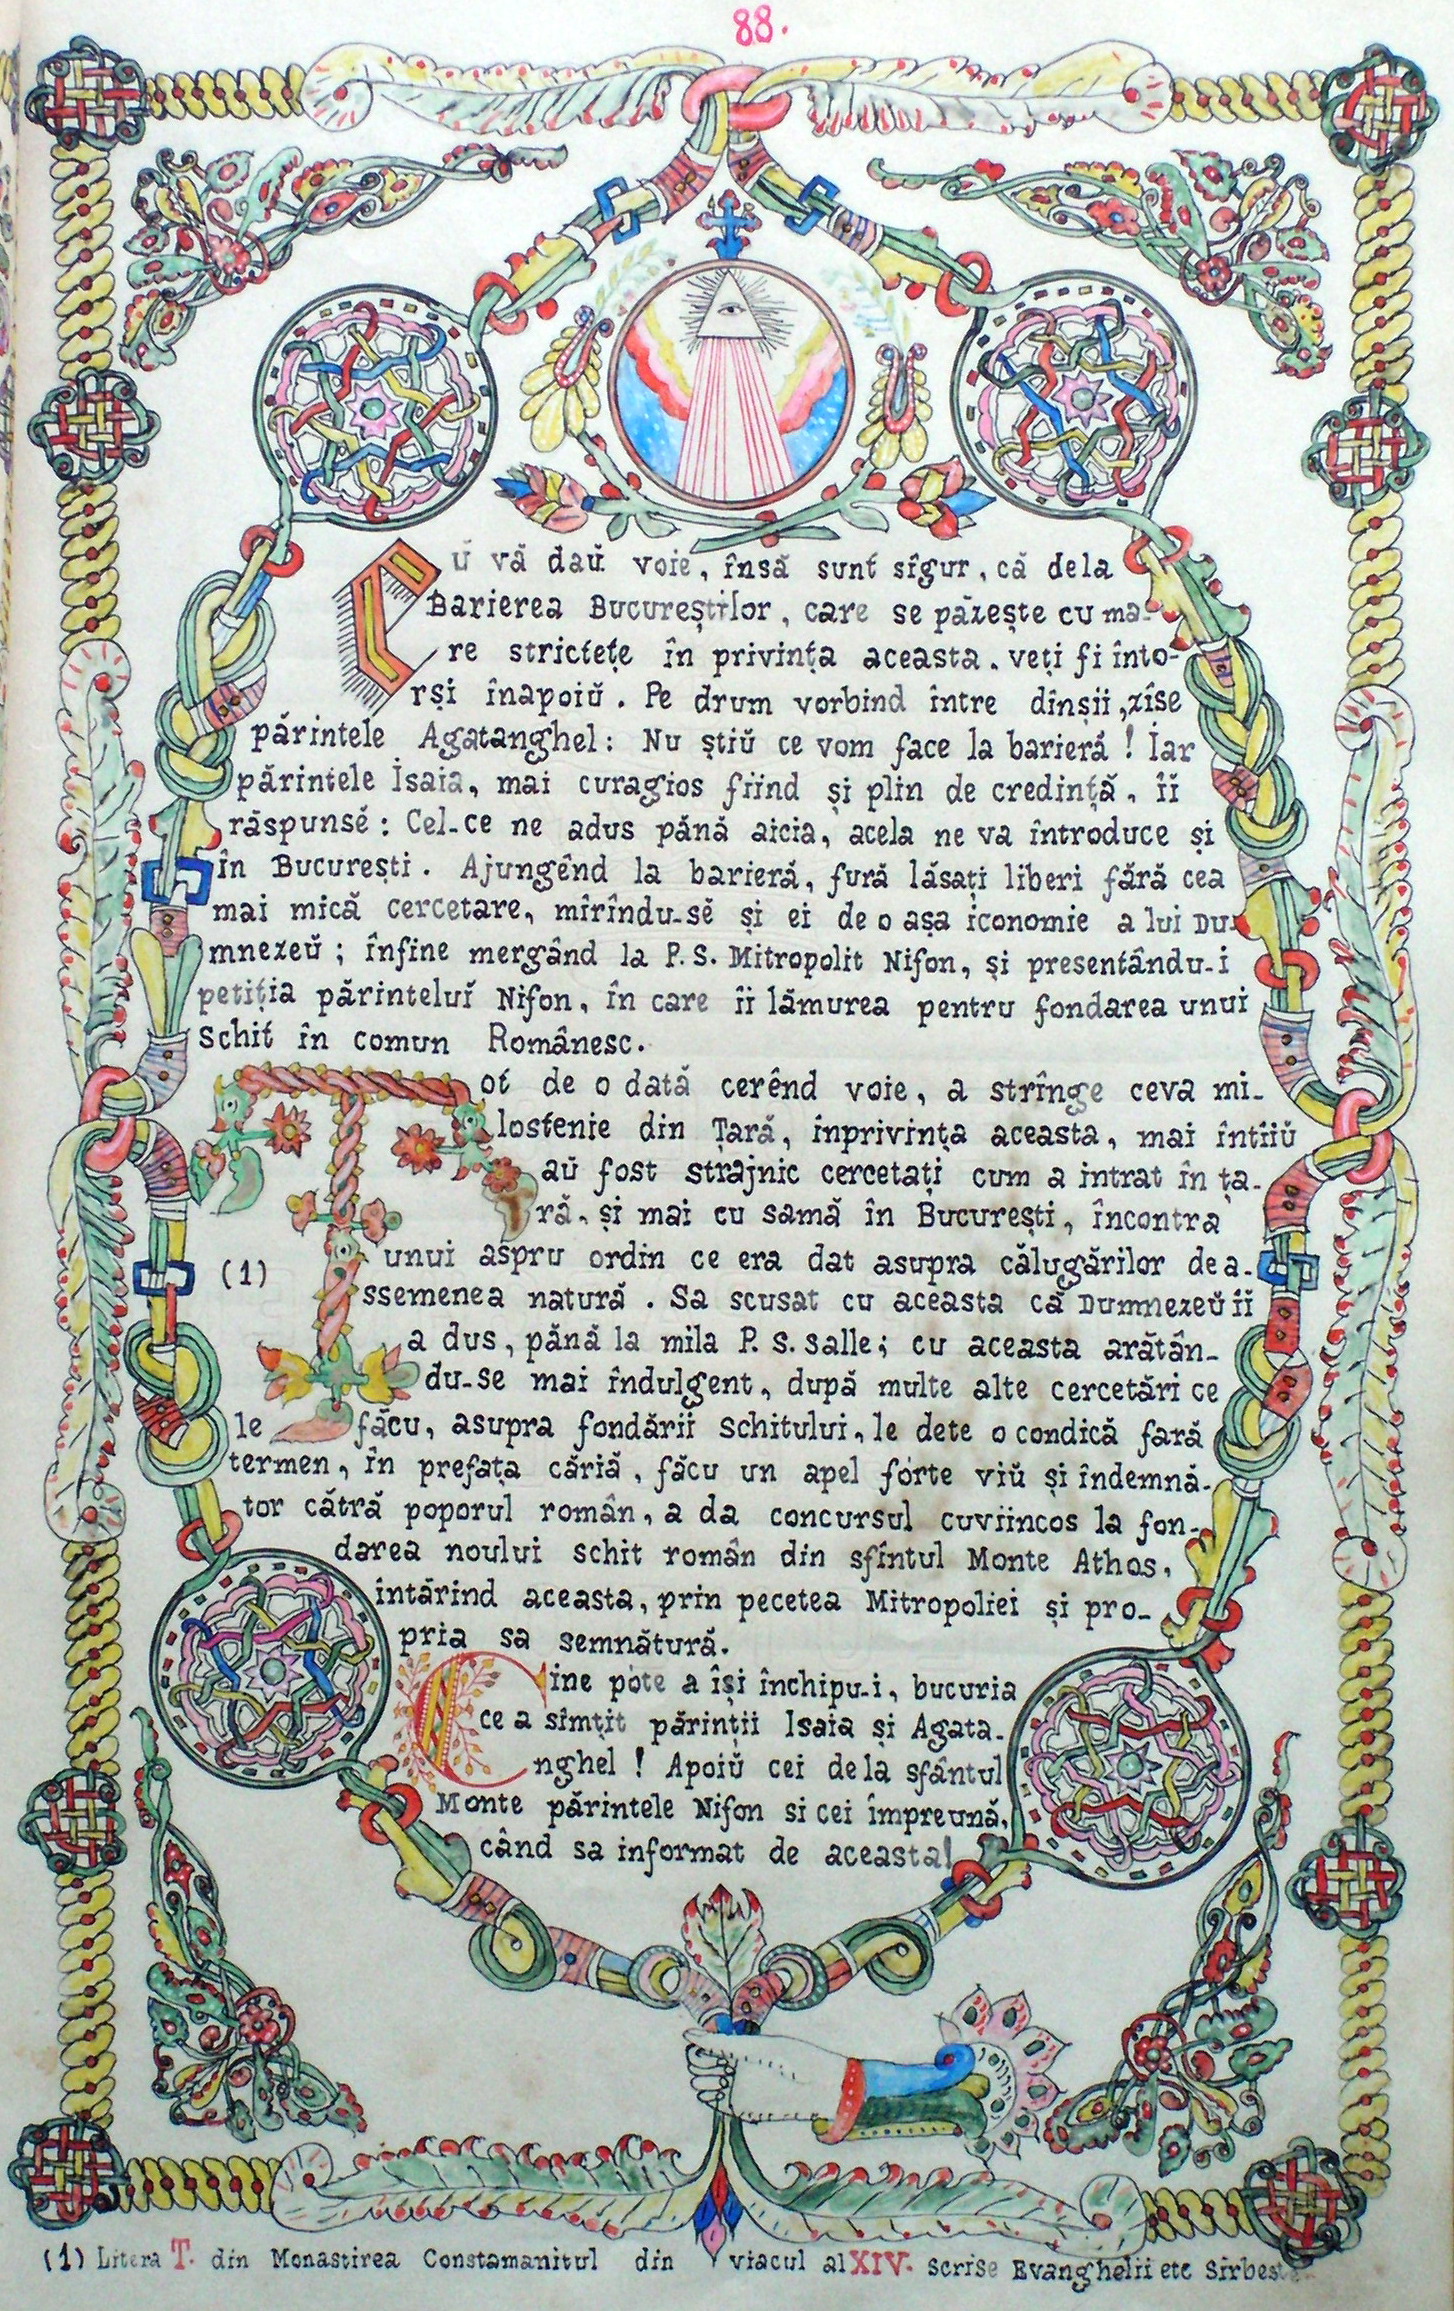 88.
Eŭ vă daŭ voie, însă sunt sîgur, că dela
Barierea Bucureștilor, care se păzește cu ma-
re strictețe în privința aceasta. veți fi înto-
rși înapoiŭ. Pe drum vorbind între dînșii, zîse
părintele Agatanghel: Nu știŭ ce vom face la barieră! Iar
părintele Isaia, mai curagios fiind și plin de credință, îĭ
răspunsĕ: Cel-ce ne adus pănă aicia, acela ne va întroduce și
în București. Ajungênd la barieră, fură lăsați liberi fără cea
mai mică cercetare, mîrîndu-sĕ și ei de o așa iconomie a lui Du-
mnezeŭ; înfine mergând la P. S. Mitropolit Nifon, și presentându-i
petiția părinteluĭ Nifon, în care îi lămurea pentru fondarea unui
Schit în comun Românesc.
Tot de o dată cerênd voie, a strînge ceva mi-
lostenie din Țară, înprivința aceasta, mai întîiŭ
aŭ fost strajnic cercetați cum a intrat în ța-
ră, și mai cu samă în București, încontra
unui aspru ordin ce era dat asupra călugărilor de a-
(1)
ssemenea natură. Sa scusat cu aceasta că Dumnezeŭ îĭ
a dus, pănă la mila P. S. Salle; cu aceasta arătân-
du-se mai îndulgent, după multe alte cercetări ce
le făcu, asupra fondăriĭ Schitului, le dete o condică fară
termen, în prefața căriă, făcu un apel forte viŭ și îndemnă-
tor cătră poporul român, a da concursul cuviincos la fon-
darea noului schit român din sfîntul Monte Athos,
întărind aceasta, prin pecetea Mitropoliei și pro-
pria sa semnătură.
Cine pote a își închipu-i, bucuria
ce a sîmțit părinții Isaia și Agata-
nghel! Apoiŭ cei dela sfântul
Monte părintele Nifon si cei împreună,
când sa informat de aceasta!
(1) Litera T. din Monastirea Constamanitul din viacul al XIV. scrise Evanghelii etc